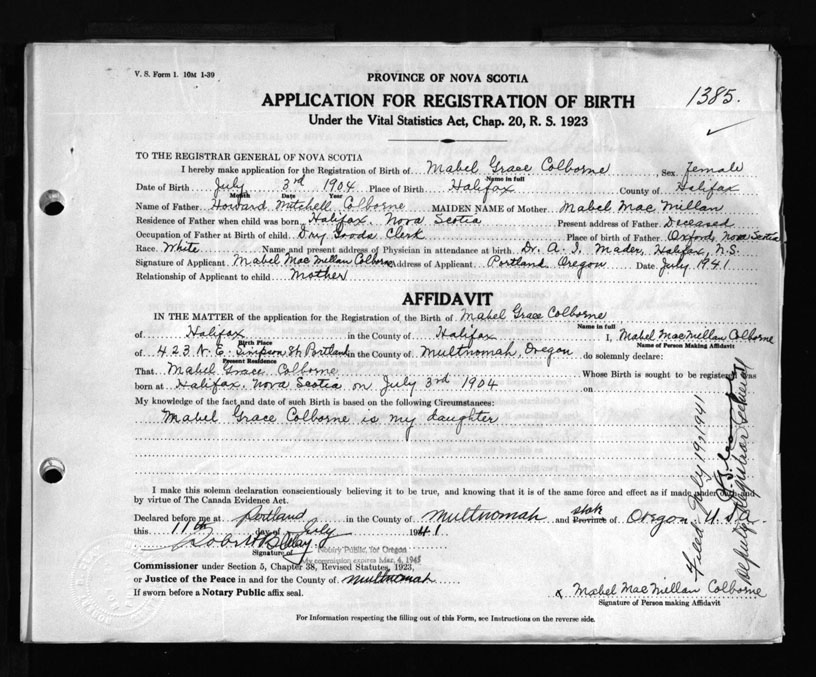 V. S. Form 1. 10M 1-39
PROVINCE OF NOVA SCOTIA
1385.
APPLICATION FOR REGISTRATION OF BIRTH
Under the Vital Statistics Act, Chap. 20, R. S. 1923
TO THE REGISTRAR GENERAL OF NOVA SCOTIA
I hereby make application for the Registration of Birth of Mabel Grace Colborne, Sex female
Name in full
Date of Birth July 3rd 1904 Place of Birth Halifax County of Halifax
Month Date Year
Name of Father Howard Mitchell Colborne MAIDEN NAME of Mother Mabel Mac Millan
Residence of Father when child was born Halifax. Nova Scotia Present address of Father Deceased
Occupation of Father at Birth of child Dry Goods Clerk Place of birth of Father Oxford, Nova Scotia
Race White Name and present address of Physician in attendance at birth Dr. A. I. Mader, Halifax, N.S.
Signature of Applicant Mabel Mac Millan Colborne Address of Applicant Portland Oregon Date July 1941
Relationship of Applicant to child Mother
AFFIDAVIT
IN THE MATTER of the application for the Registration of the Birth of Mabel Grace Colborne
Name in full
of Halifax in the County of Halifax I, Mabel MacMillan Colborne
Birth Place Name of Person Making Affidavit
of 423 N. E. Simpson St. Portland in the County of Multnomah, Oregon do solemnly declare:
Present Residence
That Mabel Grace Colborne Whose Birth is sought to be registered was
born at Halifax. Nova Scotia on July 3rd 1904 on
My knowledge of the fact and date of such Birth is based on the following Circumstances:
Mabel Grace Colborne is my daughter
I make this solemn declaration conscientiously believing it to be true, and knowing that it is of the same force and effect as if made under oath and
by virtue of The Canada Evidence Act.
Declared before me at Portland in the County of Multnomah and state Province of Oregon U.S.A.
this 11th day of July 1941
Signature of
Notary Public, for Oregon
My commission expires Mar. 4, 1945
Commissioner under Section 5, Chapter 38, Revised Statutes, 1923,
or Justice of the Peace in and for the County of Multnomah
If sworn before a Notary Public affix seal.
x Mabel MacMillan Colborne
Signature of Person making Affidavit
For Information respecting the filling out of this Form, see Instructions on the reverse side.
Filed July 19, 1941
Deputy Registrar General